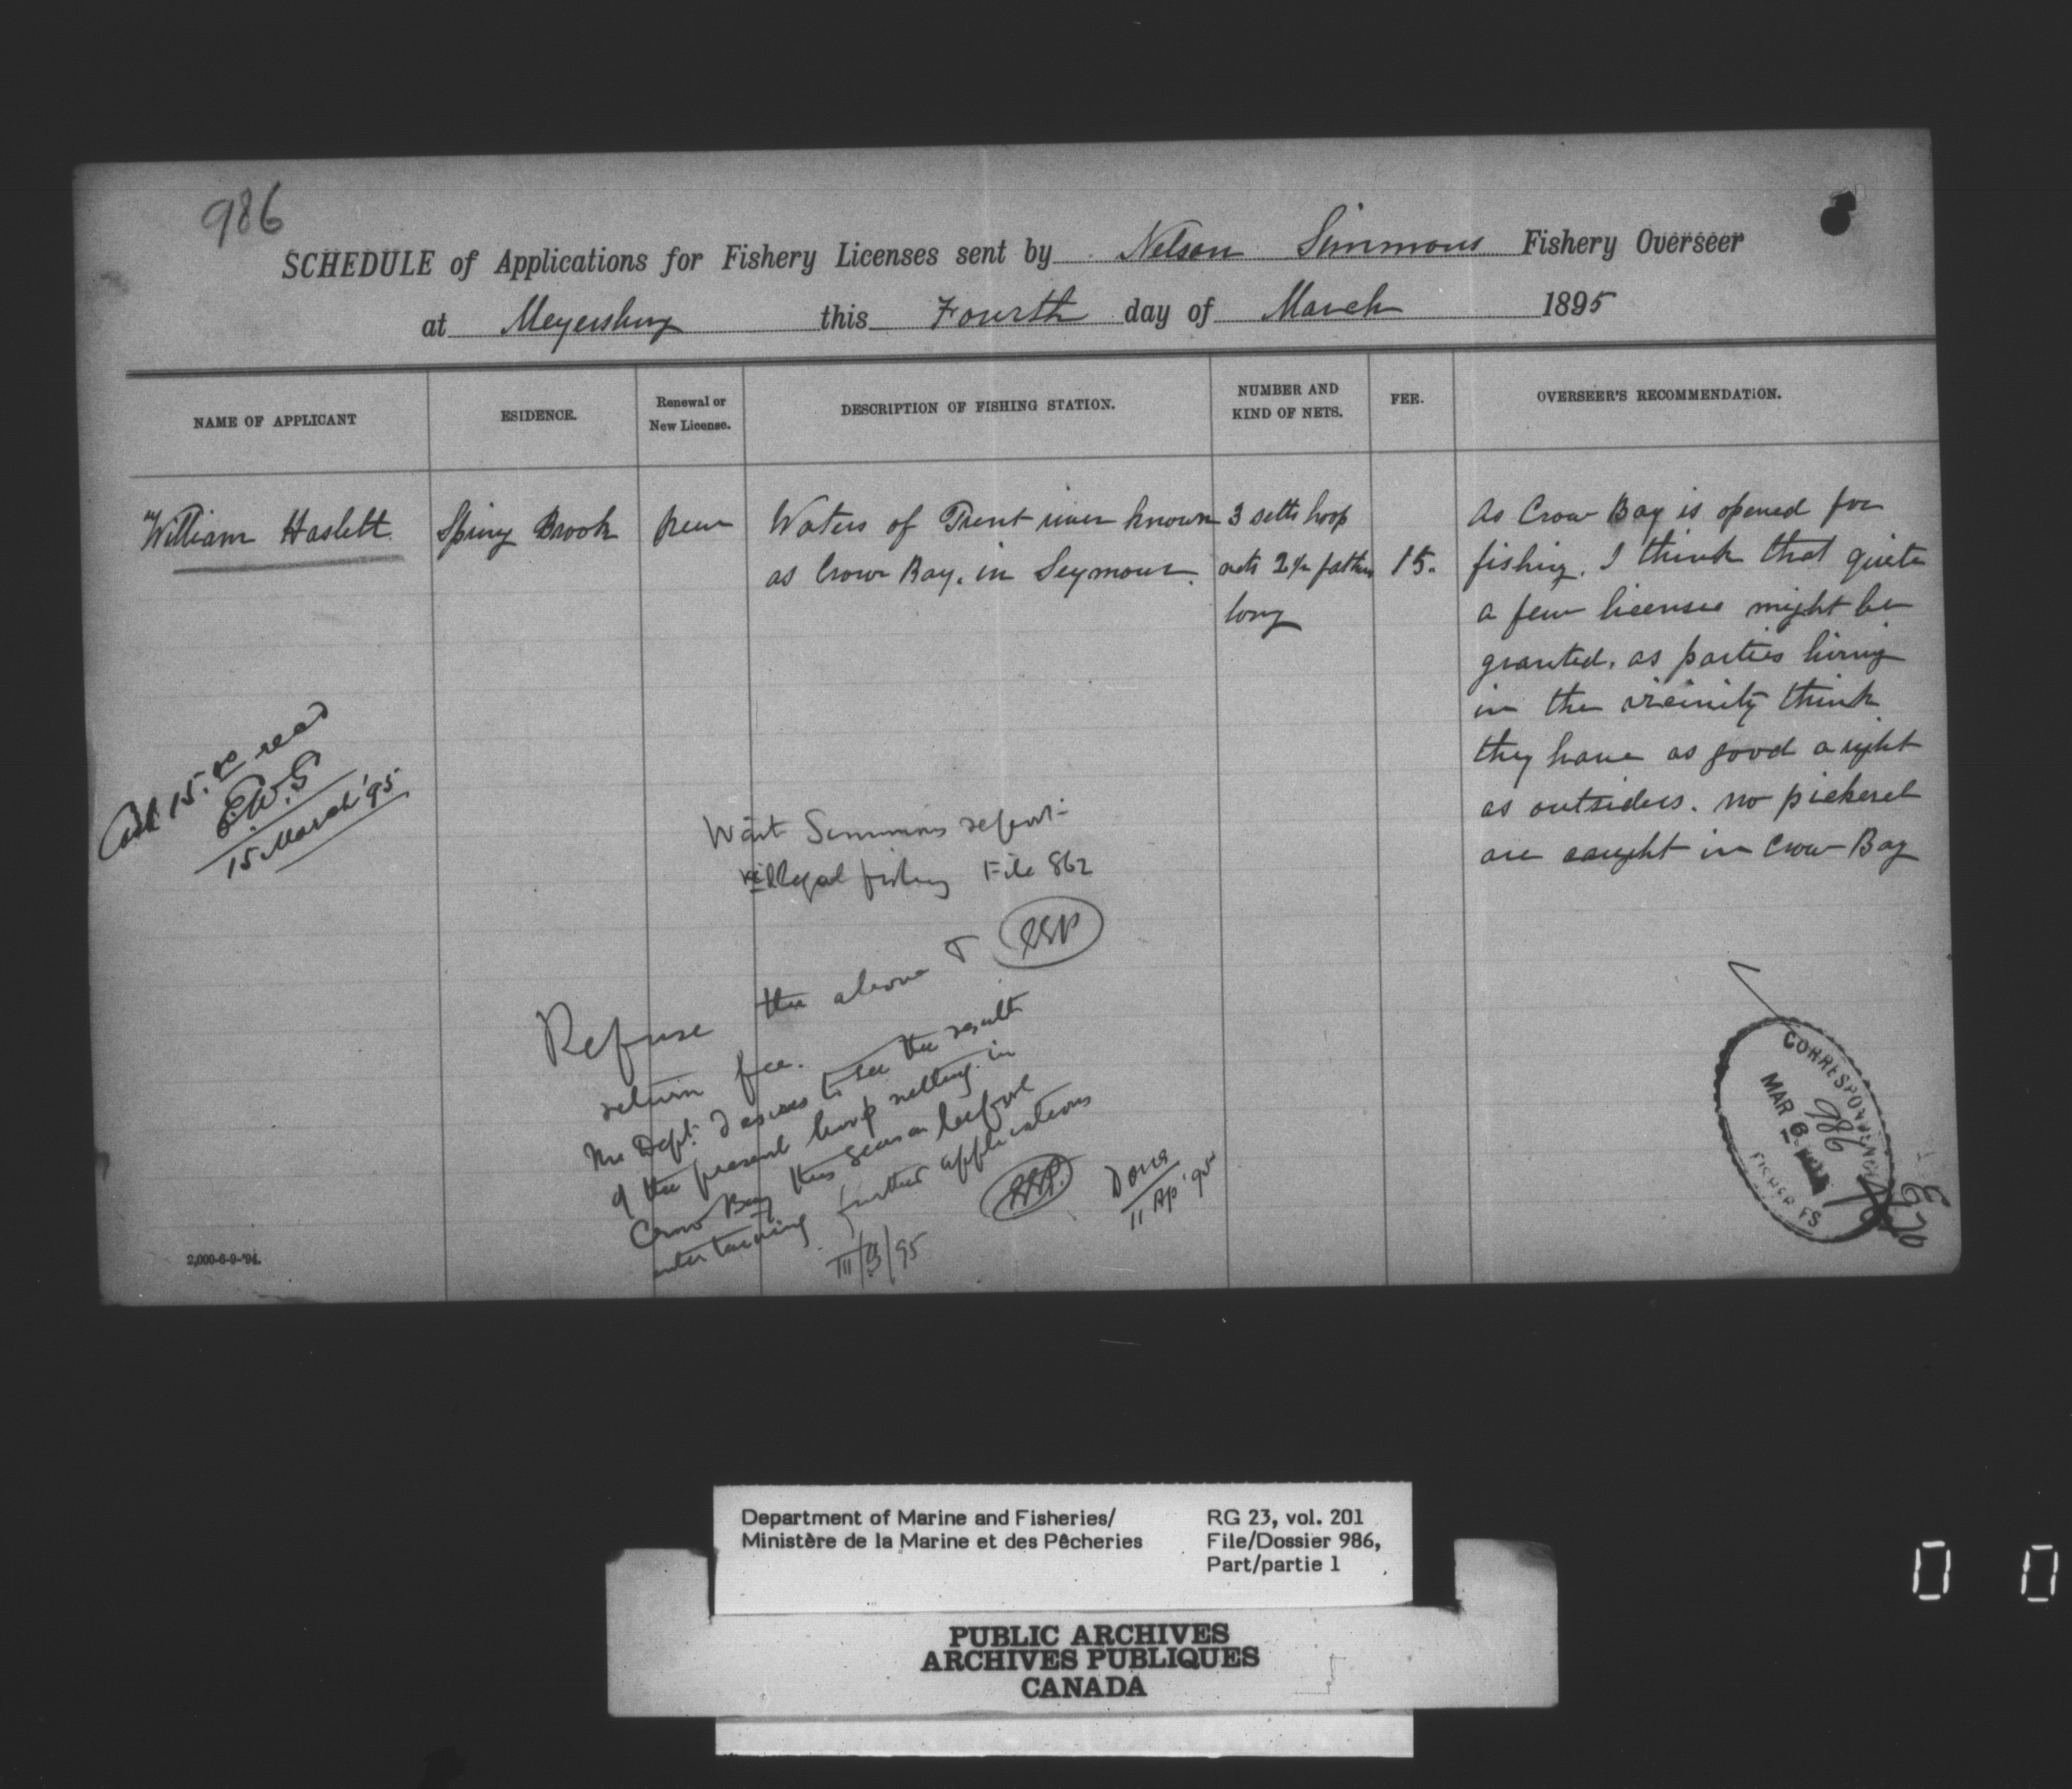 986
SCHEDULE of Applications for Fishery Licenses sent by Nelson Simmons Fishery Overseer
at Meyersburg this Fourth day of March 1895
NAME OF APPLICANT
ESIDENCE.
Renewal or
New License.
DESCRIPTION OF FISHING STATION.
NUMBER AND
KIND OF NETS.
FEE.
OVERSEER'S RECOMMENDATION.
William Haslett
Spring Brook
new
Waters of Trent river known
as Crow Bay. in Seymour.
3 setts hoop
nets 2½ fathom
long
15.
As Crow Bay is opened for
fishing. I think that quite
a few licenses might be
granted. as parties living
in the vicinity think
they have as good a right
as outsiders. no pickerel
are caught in Crow Bay
Cash 15. recd
E.W.G
15 March '95
Wait Simmons report
re illegal fishing File 862
Refuse the above &
return fee.
The Dept. desires to see the results
of the present hoop netting in
Crow Bay this season before
entertaining further applications
Done
11 Ap '95
CORRESPONDENCE
986
MAR 6
FISHERIES
2,000-6-9-'94.
Department of Marine and Fisheries/
Ministère de la Marine et des Pêcheries
RG 23, vol. 201
File/Dossier 986,
Part/partie 1
PUBLIC ARCHIVES
ARCHIVES PUBLIQUES
CANADA
0 0